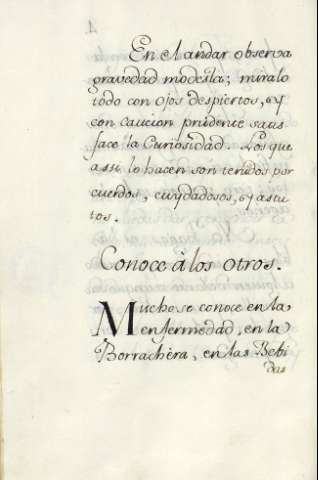 4
En el andar observa
gravedad modesta; miralo
todo con ojos despiertos, y
con caucion prudente satis
face la Curiosidad. Los que
assi lo hacen son tenidos por
cuerdos, cuydadosos, y astu
tos.
Conoce á los otros.
Mucho se conoce en la
enfermedad, en la
Borrachera, en las Bebi
das